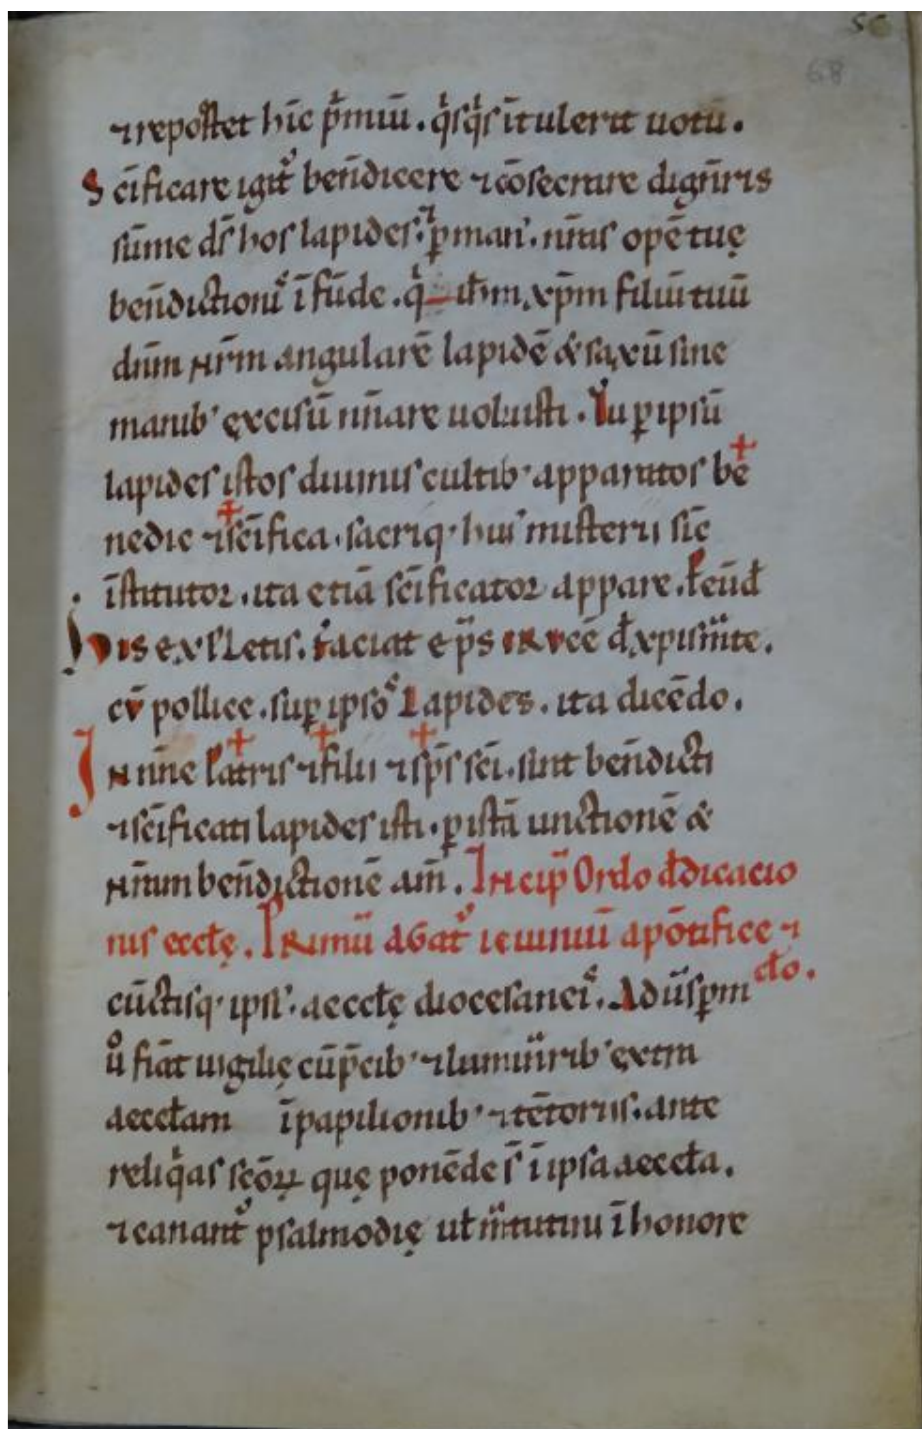 68
⁊ reportet hīc p̄miū. q̄sq̄s ītulerit uotū.
Scīficare igit᷑ ben̄dicere ⁊ cōsecrare dign̄ris
sūme d̄s hos lapides. ꝑ man᷒. nr̄as opē tuę
ben̄diction᷒ īfūde. q̇ ih̄m xp̄m filiū tuū
dn̄m nr̄m angularē lapidē & saxū sine
manib᷒ excisū nn̄are uoluisti. Tu ꝑ ipsū
lapides istos diuinis cultib᷒ apparatos be
nedic ⁊ scīfica. sacriq᷒ hui᷒ misterii sīc
īstitutor. ita etiā scīficator appare.
His expletis. faciat ep̄s crucē
cū pollice. suꝑ ipsos lapides. ita dicēdo.
In nn̄e Patris ⁊ filii ⁊ sp̄s sc̄i. sint ben̄dicti
⁊ scīficati lapides isti. ꝑ istā unctionē &
nr̄am ben̄dictionē am̄. Incip̄ Ordo d̄dicacio
nis eccł̄ę. Primū agat᷑ ieiuniū a pōtifice ⁊ cł̄o.
cūctisq᷒ ipsi᷒. aeccł̄ę diocesaneis. Ad ūsꝑm
ū fiāt uigilię cū p̄cib᷒ ⁊ luminarib᷒ extra
aeccł̄am īpapilionib᷒ ⁊ tētoriis. ante
reliq̇as sc̄oꝝ quę ponēde s̄ īipsa aeccł̄a.
⁊ canant᷑ psalmodię ut matutini ī honore